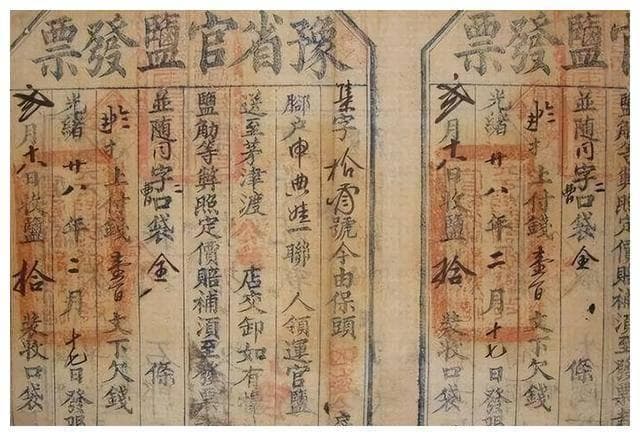 官鹽發票
鹽觔等弊照定價賠補須至發票
並隨同字口袋 全 條
上付錢壹百文下欠錢
光緒廿八年二月十七日發
月十八日收鹽拾 裝收口袋
豫省官鹽發票
集字拾號今由保頭
腳户申典娃一聯 人領運官鹽
送至茅津渡 店交卸如有
鹽觔等弊照定價賠補須至發票
並隨同字口袋 全 條
上付錢壹百文下欠錢
光緒廿八年二月十七日發
月十八日收鹽拾 裝收口袋